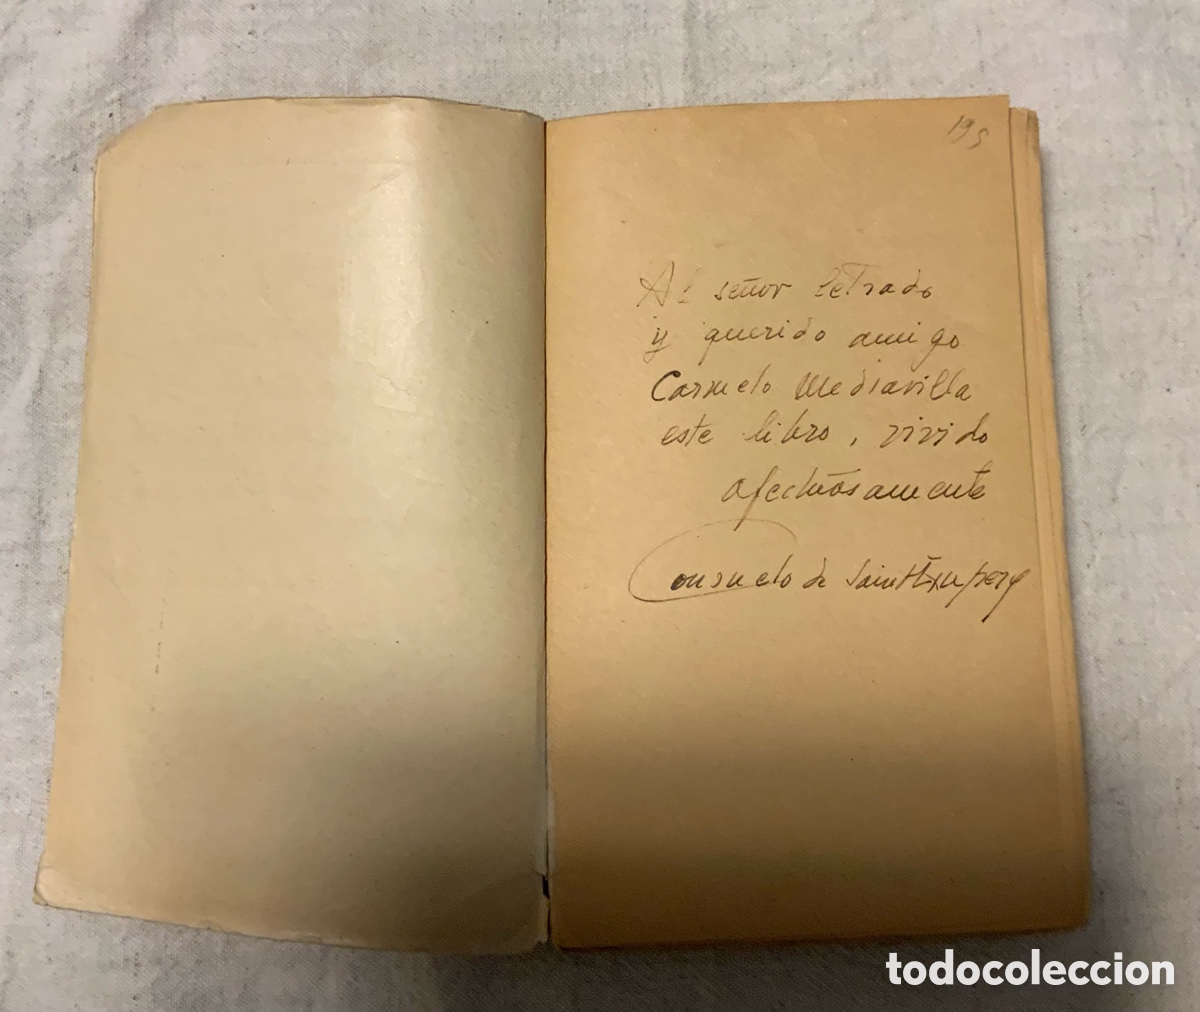 195
Al señor letrado
y querido amigo
Carmelo Mediavilla
este libro, vivido
afectuosamente
Consuelo de Saint Exupery
todocoleccion